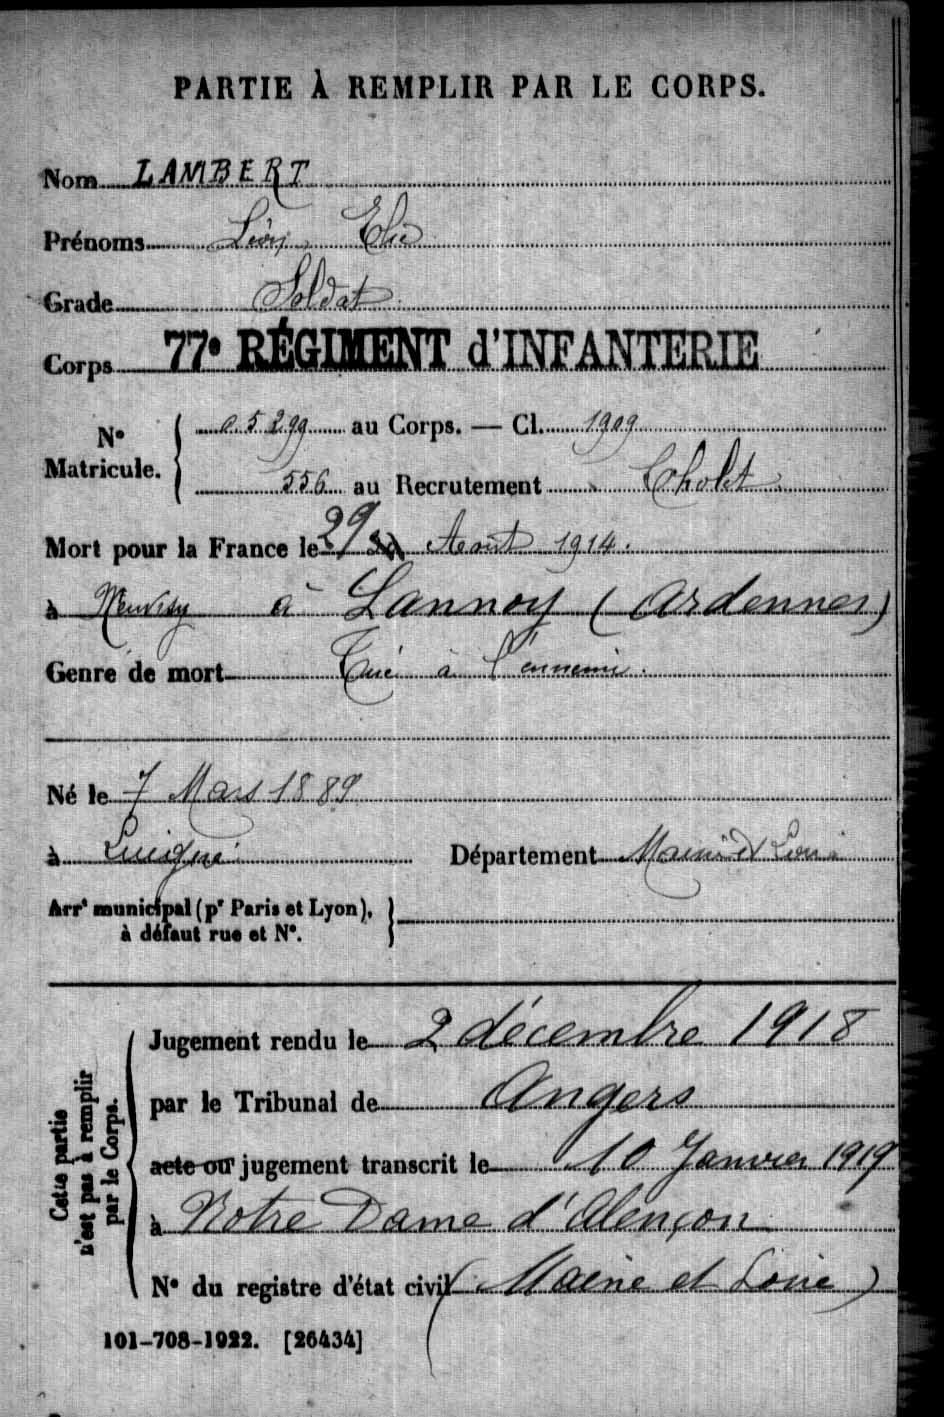 PARTIE À REMPLIR PAR LE CORPS.
Nom LAMBERT
Prénoms Léon, Elie
Grade Soldat
Corps 77e RÉGIMENT d'INFANTERIE
N° Matricule. 05299 au Corps. — Cl. 1909
556 au Recrutement Cholet
Mort pour la France le 29 Août 1914.
à Neuvizy à Lannoy (Ardennes)
Genre de mort Tué à l'ennemi.
Né le 7 Mars 1889
à Luigné Département Maine et Loire
Arrt municipal (pr Paris et Lyon),
à défaut rue et N°.
Cette partie n'est pas à remplir par le Corps.
Jugement rendu le 2 décembre 1918
par le Tribunal de Angers
acte ou jugement transcrit le 10 Janvier 1919
à Notre Dame d'Alençon
N° du registre d'état civil (Maine et Loire)
101-708-1922. [26434]